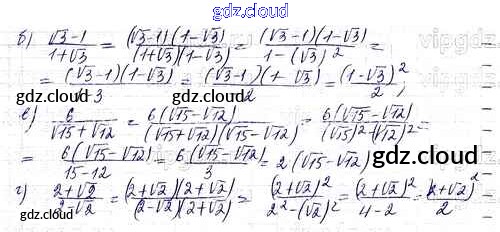 gdz.cloud
б) (√3-1)/(1+√3) = ((√3-1)(1-√3))/((1+√3)(1-√3)) = ((√3-1)(1-√3))/(1-(√3)²) =
= ((√3-1)(1-√3))/(1-3) = ((√3-1)(1-√3))/(-2) = (1-√3)²/2;
gdz.cloud gdz.cloud
в) 6/(√15+√12) = 6(√15-√12)/((√15+√12)(√15-√12)) = 6(√15-√12)/((√15)²-(√12)²) =
= 6(√15-√12)/(15-12) = 6(√15-√12)/3 = 2(√15-√12)
gdz.cloud
г) (2+√2)/(2-√2) = ((2+√2)(2+√2))/((2-√2)(2+√2)) = (2+√2)²/(2²-(√2)²) = (2+√2)²/(4-2) = (2+√2)²/2
gdz.cloud gdz.cloud